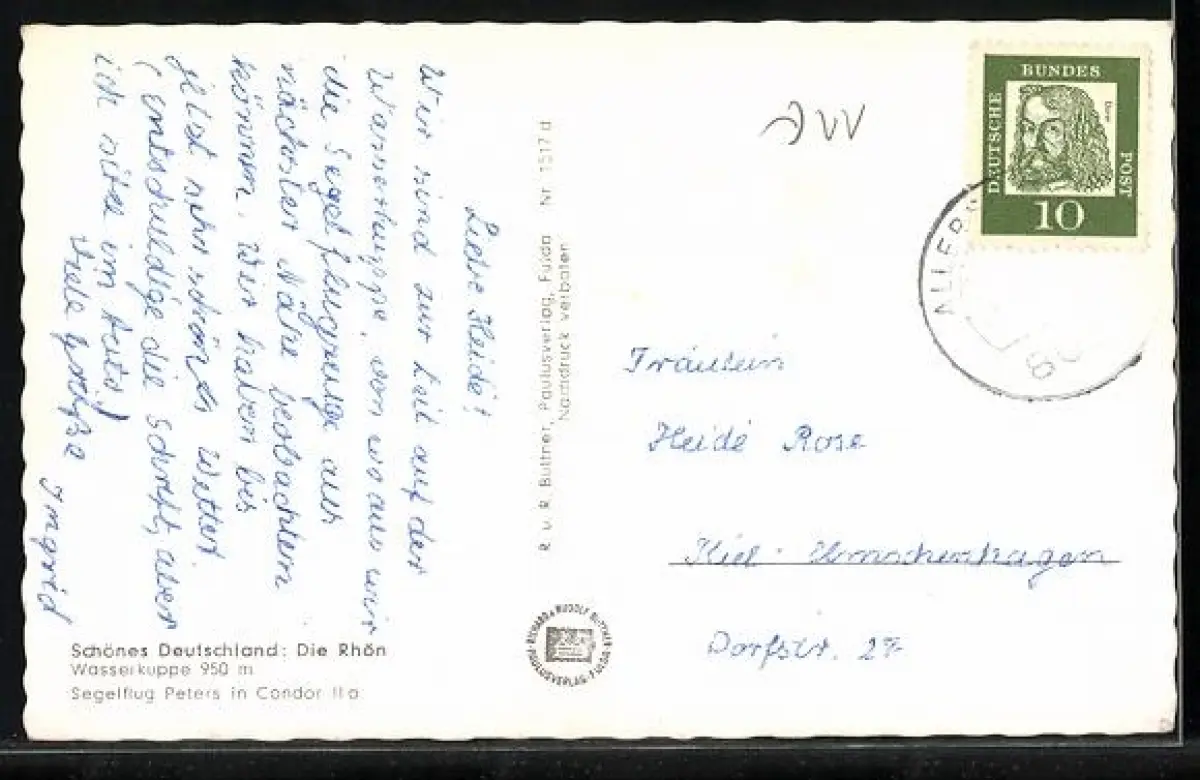 Liebe Heide!
Wir sind zur Zeit auf der
Wasserkuppe, von wo aus wir
die Segelflugzeuge aus
nächster Nähe beobachten
können. Wir haben bis
jetzt sehr schönes Wetter.
(entschuldige die Schrift, aber
ich sitze im Auto!)
Viele Grüße
Ingrid
Schönes Deutschland: Die Rhön
Wasserkuppe 950 m
Segelflug Peters in Condor II a
R. u. R. Büttner, Paulusverlag, Fulda Nr. 1517 d
Nachdruck verboten
RICHARD & RUDOLF BÜTTNER
PAULUSVERLAG · FULDA
DEUTSCHE
BUNDES
POST
Dürer
10
Fräulein
Heide Rose
Kiel-Elmschenhagen
Dorfstr. 27